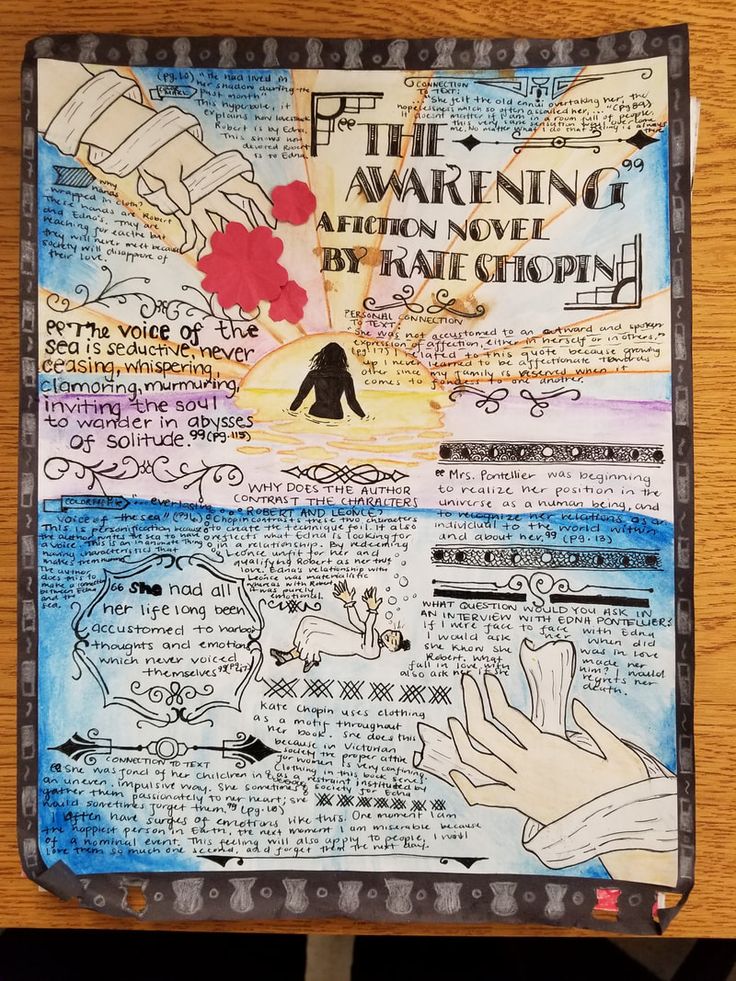 (pg.10) "He had lived in
her shadow during the
past month"
This hyperbole, it
explains how lovestruck
Robert is by Edna.
This shows how
devoted Robert
is to Edna.
CONNECTION
TO TEXT:
"She felt the old ennui overtaking her; the
hopelessness which so often assailed her, ..." (pg 89)
It doesnt matter if I am in a room full of people,
this very same sensation would over come
me. No matter what I do that feeling is always
there
"THE
AWAKENING"
A FICTION NOVEL
BY KATE CHOPIN
Why
hands
wrapped in cloth?
These hands are Robert
and Edna's. They are
reaching for eachther but
they will never meet because
society will disapprove of
their love.
"The voice of the
sea is seductive, never
ceasing, whispering,
clamoring, murmuring,
inviting the soul
to wander in abysses
of solitude." (pg. 115)
PERSONAL CONNECTION
TO TEXT:
"She was not accustomed to an outward and spoken
expression of affection, either in herself or in others."
(pg.17) I related to this quote because growing
up I never learned to be affectionate towards
other since my family is reserved when it
comes to fondess to one another.
"Mrs. Pontellier was beginning
to realize her position in the
universe as a human being, and
to recognize her relations as an
individual to the world within
and about her." (pg.13)
"everlasting
voice of the sea" (pg 6)
This is personification because
the author writes the sea to have
a voice. This is an inanimate thing
having characteristics that
makes them human.
The author
does this to
make a
between Edna
and the
sea.
WHY DOES THE AUTHOR
CONTRAST THE CHARACTERS
ROBERT AND LEONCE?
Chopin contrasts these two characters
to create the technique foil. It also
reflects what Edna is looking for
in a relationship. By redeeming
Leonce unfit for her and
qualifying Robert as her true
love. Edna's relationship with
Leonce was materialistic
whereas with Robert
it was purely
emotional.
"She had all
her life long been
accustomed to harbor
thoughts and emotions
which never voiced
themselves"
WHAT QUESTION WOULD YOU ASK IN
AN INTERVIEW WITH EDNA PONTELLIER?
If I were face to face with Edna
I would ask her when did
she know she was in love
Robert. What made her
fall in love with him? I would
also ask her if she regrets her
death.
Kate Chopin uses clothing
as a motif throughout
her book. She does this
because in Victorian
society the proper attire
for women is very confining.
Clothing in this book serves
as a restraint instituted by
society for Edna
CONNECTION TO TEXT
"She was fond of her children in
an uneven, impulsive way. She sometimes
gather them passionately to her heart; she
would sometimes forget them." (pg.20)
I often have surges of emotions like this. One moment I am
the happiest person in Earth, the next moment I am miserable because
of a nominal event. This feeling will also apply to people, I would
love them so much one second, and forget them the next day.